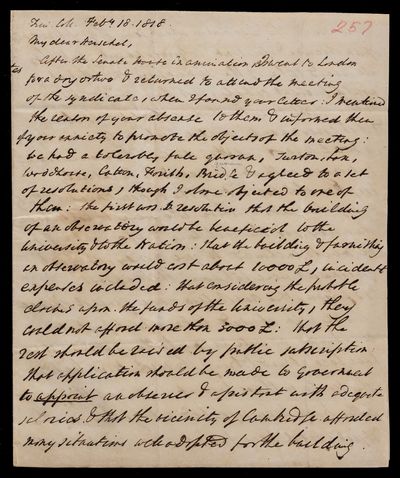 Feby 18. 1818.
257
My dear Herschel,
After the Senate House examination I went to London
for a day or two & returned to attend the meeting
of the syndicate, when I found your letter: I mentioned
the reason of your absence to them & informed them
of your anxiety to promote the objects of the meeting:
we had a tolerably full quorum, Turton,
Woodhouse, Catton, Farish, & agreed to a set
of resolutions, though I alone objected to one of
them: the first was a resolution that the building
of an observatory would be beneficial to the
University & to the Nation: that the building & furnishing
an observatory would cost about 10000 £, incident
expenses included: that considering the probable
claims upon the funds of the University, they
could not afford more than 5000 £: that the
rest should be raised by public subscription
that application should be made to Government
to appoint an observer & assistant with adequate
salaries & that the vicinity of Cambridge afforded
many situations well adapted for the building.